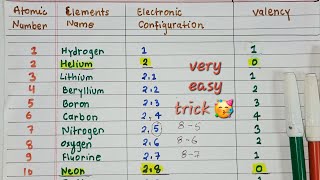 Atomic Number Elements Name Electronic Configuration Valency
1 Hydrogen 1 1
2 Helium 2 0
3 Lithium 2,1 1
4 Beryllium 2,2 2
5 Boron 2,3 3
6 Carbon 2,4 4
7 Nitrogen 2,5 8-5 3
8 oxygen 2,6 8-6 2
9 Fluorine 2,7 8-7 1
10 Neon 2,8 0
very
easy
trick